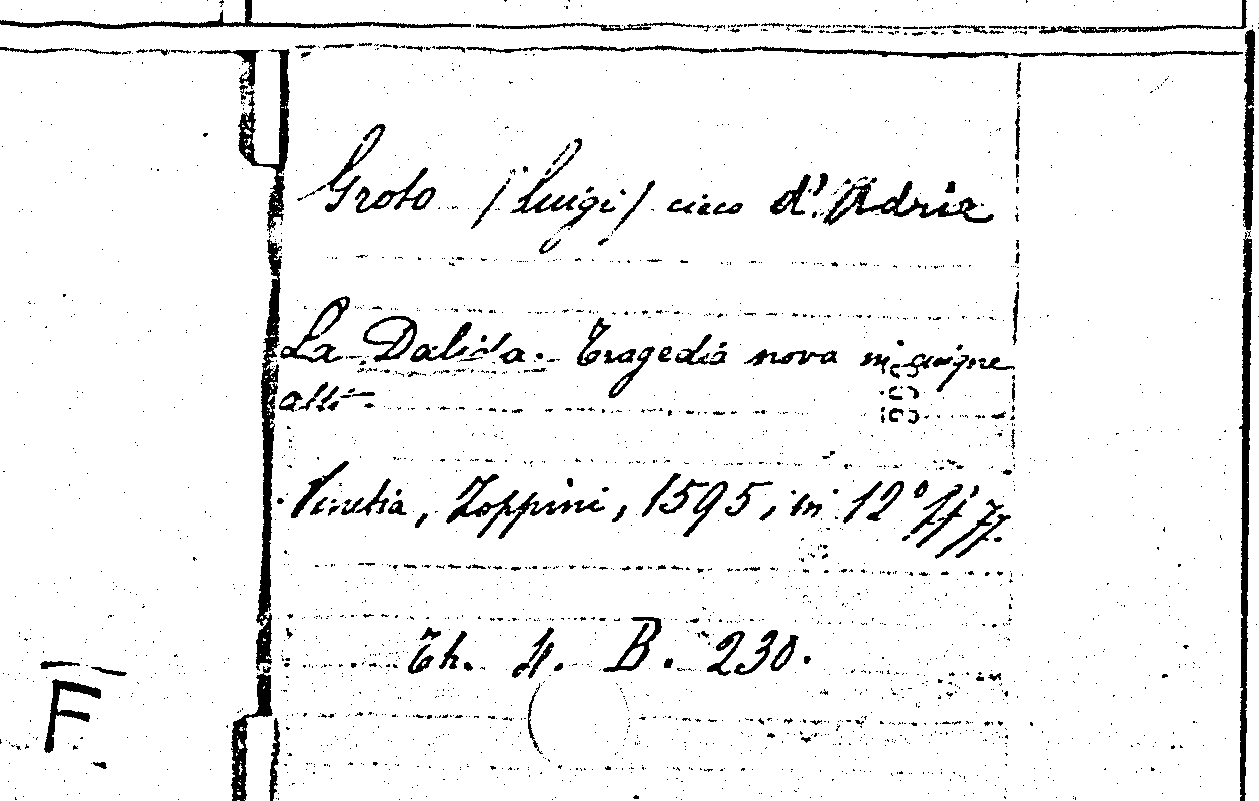 Groto (Luigi) cieco d'Adria
La Dalida. Tragedia nova
atti.
Venetia, Zoppini, 1595, in 12°
Th. 4. B. 230.
F